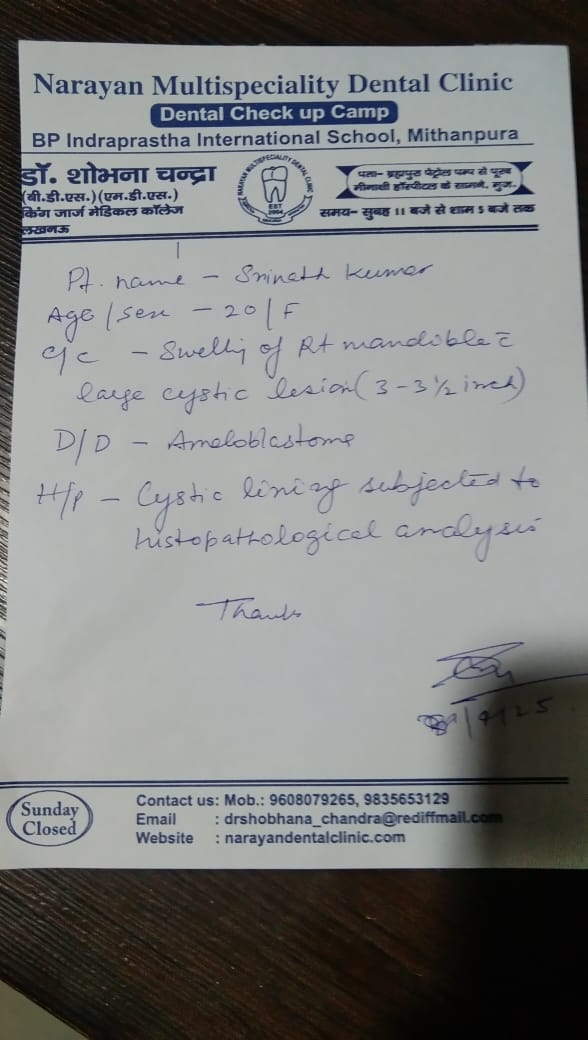 Narayan Multispeciality Dental Clinic
Dental Check up Camp
BP Indraprastha International School, Mithanpura
डॉ. शोभना चन्द्रा
(बी.डी.एस.)(एम.डी.एस.)
किंग जार्ज मेडिकल कॉलेज
लखनऊ
NARAYAN MULTISPECIALITY DENTAL CLINIC
EST
2004
पता- ब्रह्मपुरा पेट्रोल पम्प से पूरब
मीनाक्षी हॉस्पीटल के सामने, मुज.
समय- सुबह 11 बजे से शाम 5 बजे तक
Pt. name - Srinath Kumar
Age/sex - 20/F
c/c - Swelling of Rt mandible c̄
large cystic lesion (3-3½ inch)
D/D - Ameloblastoma
H/p - Cystic lining subjected to
histopathological analysis
Thanks
/9/25
Sunday
Closed
Contact us: Mob.: 9608079265, 9835653129
Email : drshobhana_chandra@rediffmail.com
Website : narayandentalclinic.com